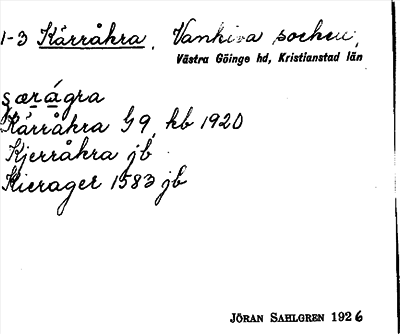 1-3 Kärråkra, Vankiva socken,
Västra Göinge hd, Kristianstad län
şærágra
Kärråkra G 9, kb 1920
Kjerråkra jb
Kierager 1583 jb
JÖRAN SAHLGREN 1926